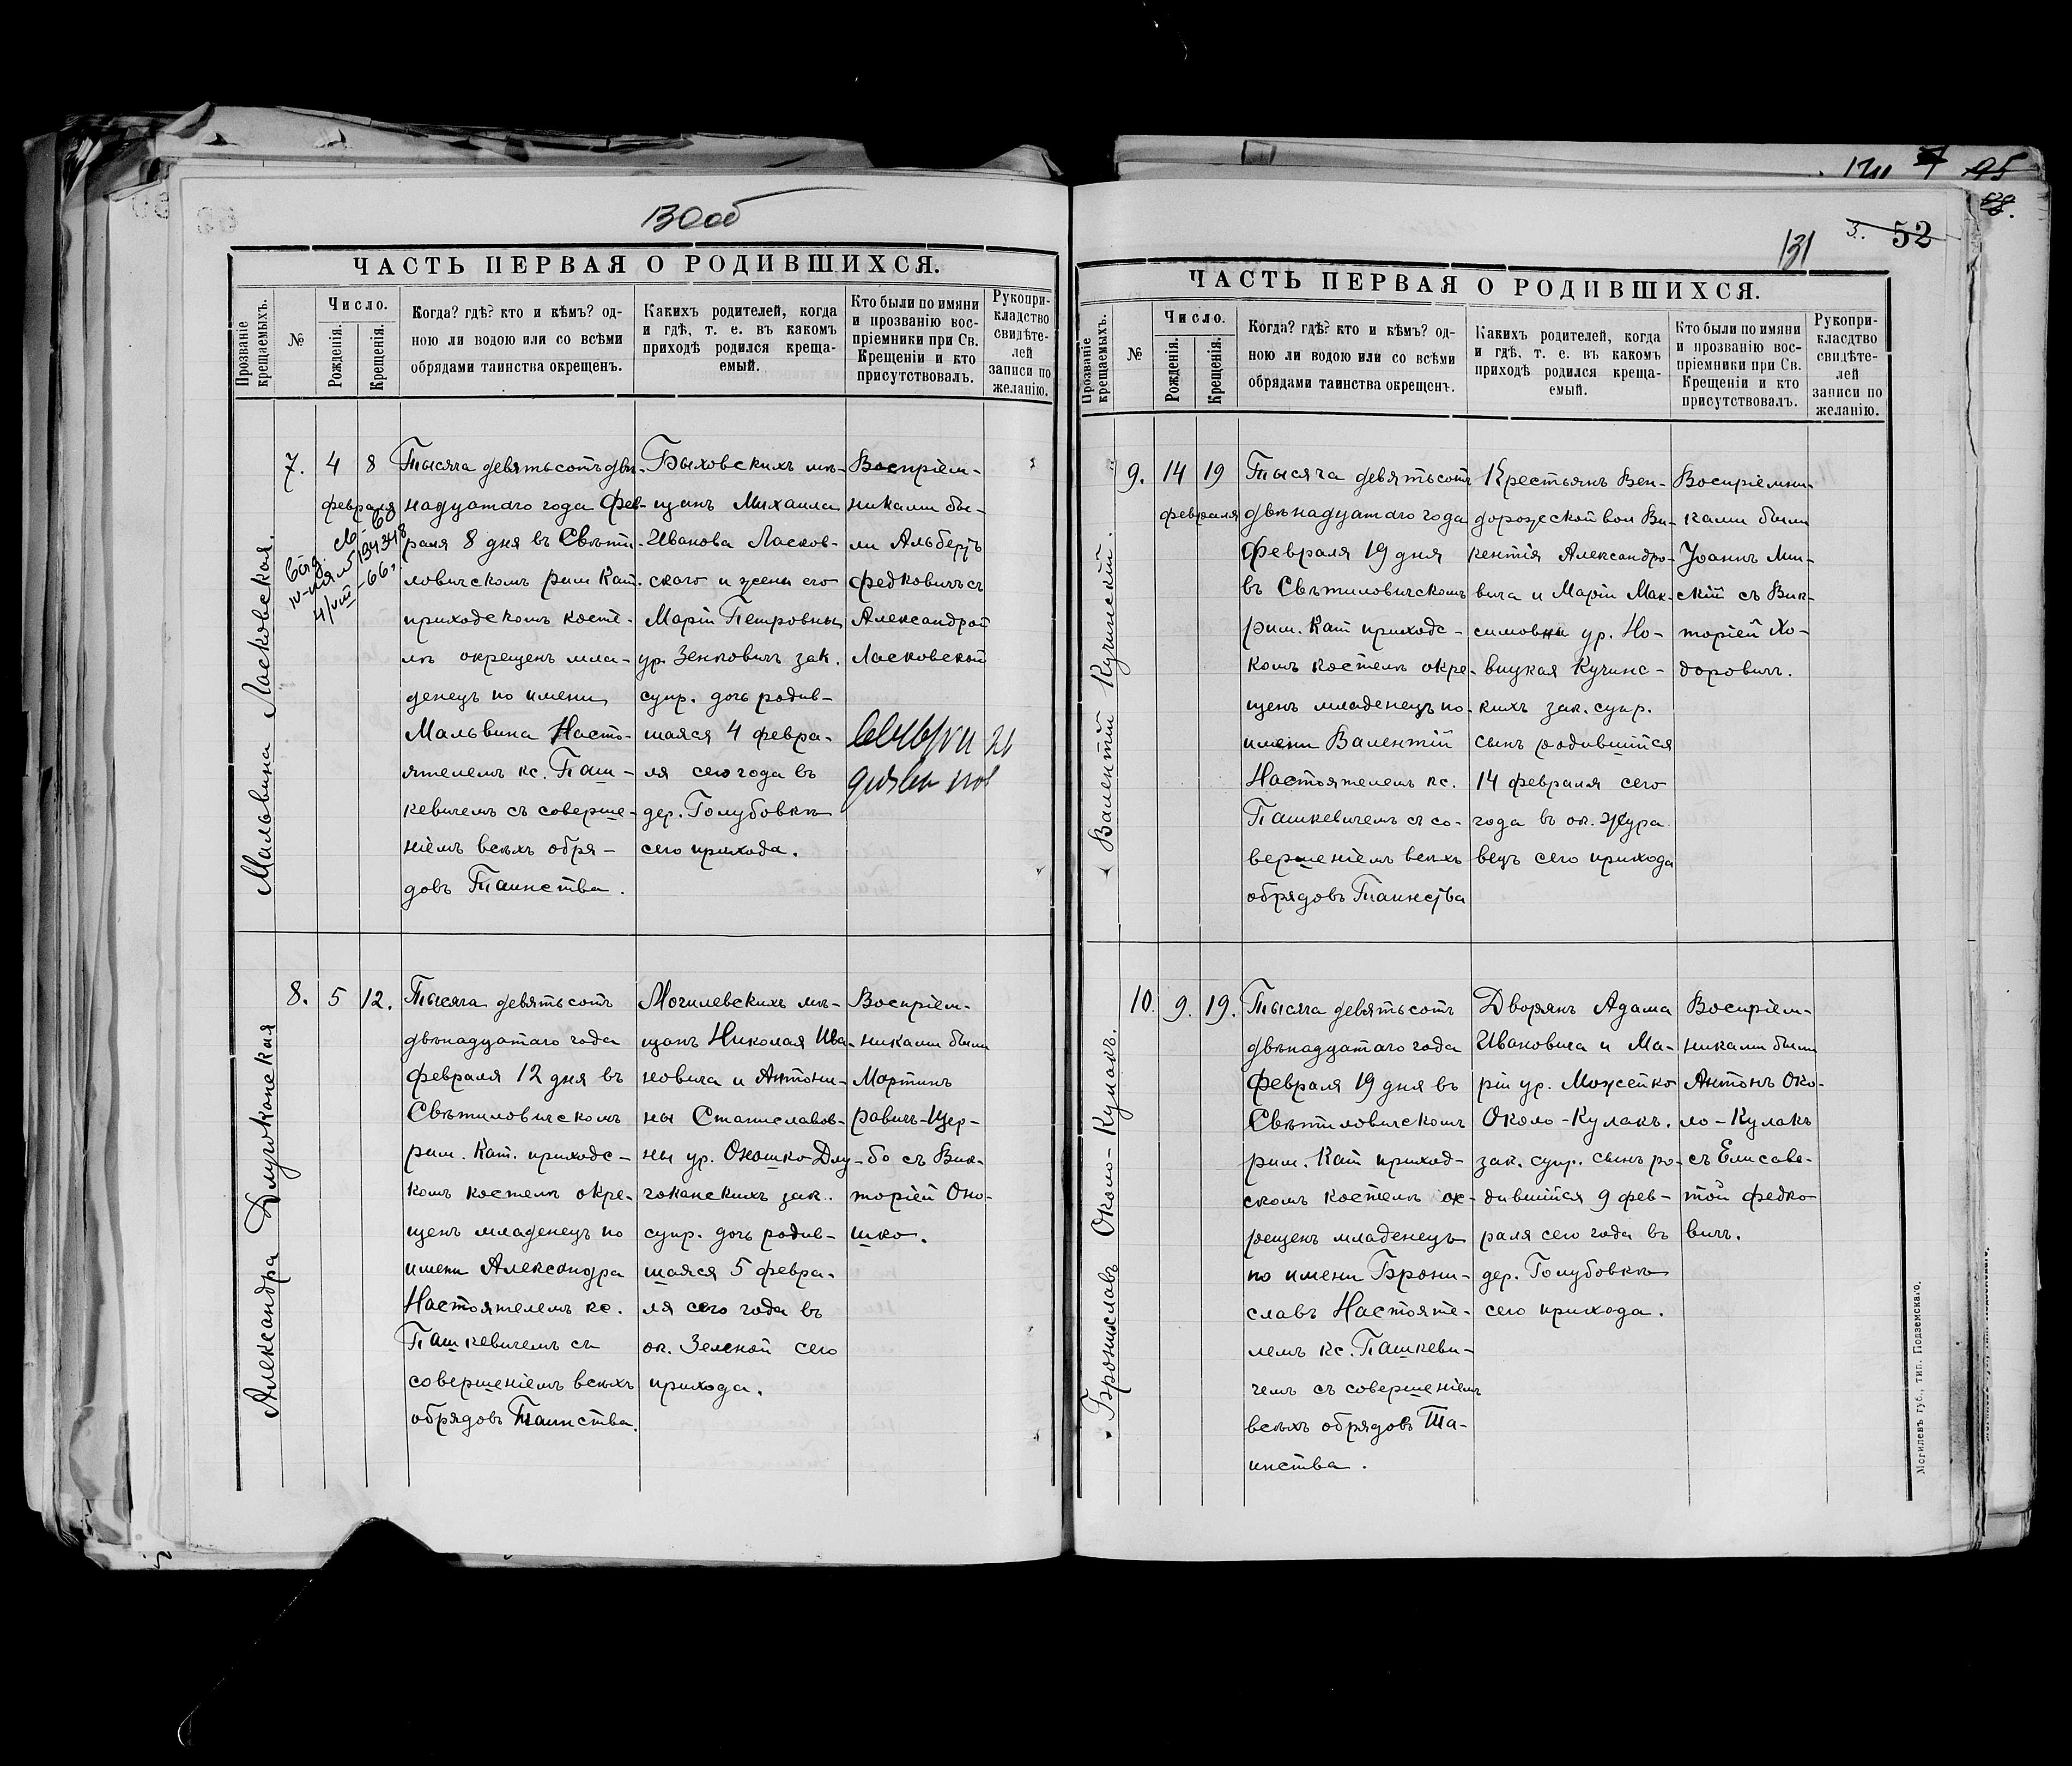 130об
ЧАСТЬ ПЕРВАЯ О РОДИВШИХСЯ.
Прозваніе крещаемыхъ.
№
Число.
Рожденія.
Крещенія.
Когда? гдѣ? кто и кѣмъ? од-
ною ли водою или со всѣми
обрядами таинства окрещенъ.
Какихъ родителей, когда
и гдѣ, т. е. въ какомъ
приходѣ родился креща-
емый.
Кто были по имяни
и прозванію вос-
пріемники при Св.
Крещеніи и кто
присутствовалъ.
Рукопри-
кладство
свидѣте-
лей
записи по
желанію.
Мальвина Ласковская.
7.
4
8
февраля
Тысяча девятьсотъ двѣ-
надцатаго года Фев-
раля 8 дня въ Свѣти-
ловичскомъ рим Кат.
приходскомъ косте-
лѣ окрещенъ мла-
денецъ по имени
Мальвина Насто-
ятелемъ кс. Паш-
кевичемъ съ соверше-
ніемъ всѣхъ обря-
довъ Таинства.
Быховскихъ мѣ-
щанъ Михаила
Иванова Ласков-
скаго и жены его
Маріи Петровны
ур. Зенковичъ зак.
супр. дочь родив-
шаяся 4 февра-
ля сего года въ
дер. Голубовкѣ
сего прихода.
Воспріем-
никами бы-
ли Альбертъ
Федковичъ съ
Александрой
Ласковской
Александра Длугоканская
8.
5
12.
Тысяча девятьсотъ
двѣнадцатаго года
февраля 12 дня въ
Свѣтиловичскомъ
рим. Кат. приходс-
комъ костелѣ окре-
щенъ младенецъ по
имени Александра
Настоятелемъ кс.
Пашкевичемъ съ
совершеніемъ всѣхъ
обрядовъ Таинства.
Могилевскихъ мѣ-
щанъ Николая Ива-
новича и Антони-
ны Станиславов-
ны ур. Оношко Длу-
гоканскихъ зак.
супр. дочь родив-
шаяся 5 февра-
ля сего года въ
ок. Зеленой сего
прихода.
Воспріем-
никами были
Мартинъ
равичъ-Щер-
бо съ Вик-
торіей Оно-
шко.
131
3. 52
ЧАСТЬ ПЕРВАЯ О РОДИВШИХСЯ.
Прозваніе крещаемыхъ.
№
Число.
Рожденія.
Крещенія.
Когда? гдѣ? кто и кѣмъ? од-
ною ли водою или со всѣми
обрядами таинства окрещенъ.
Какихъ родителей, когда
и гдѣ, т. е. въ какомъ
приходѣ родился креща-
емый.
Кто были по имяни
и прозванію вос-
пріемники при Св.
Крещеніи и кто
присутствовалъ.
Рукопри-
класдтво
свидѣте-
лей
записи по
желанію.
Валентій Кучинскій.
9.
14
19
февраля
Тысяча девятьсотъ
двѣнадцатаго года
февраля 19 дня
въ Свѣтиловичскомъ
рим. Кат приходс-
комъ костелѣ окре-
щенъ младенецъ по-
имени Валентій
Настоятелемъ кс.
Пашкевичемъ съ со-
вершеніемъ всѣхъ
обрядовъ Таинства
Крестьянъ Вен-
дорожской вол Ви-
кентія Александро-
вича и Маріи Мак-
симовны ур. Но-
вицкая Кучинс-
кихъ зак. супр.
сынъ родившійся
14 февраля сего
года въ ок. Жура
вецъ сего прихода
Воспріемни-
ками были
Іоаннъ Мин-
скій съ Вик-
торіей Хо-
доровичъ.
Брониславъ Около-Кулакъ.
10.
9.
19.
Тысяча девятьсотъ
двѣнадцатаго года
февраля 19 дня въ
Свѣтиловичскомъ
рим. Кат приход-
скомъ костелѣ ок-
рещенъ младенецъ
по имени Брони-
славъ Настояте-
лемъ кс. Пашкеви-
чемъ съ совершеніемъ
всѣхъ обрядовъ Та-
инства.
Дворянъ Адама
Ивановича и Ма-
ріи ур. Можейко
Около-Кулакъ.
зак. супр. сынъ ро-
дившійся 9 фев-
раля сего года въ
дер. Голубовкѣ
сего прихода.
Воспріем-
никами были
Антонъ Око-
ло-Кулакъ
съ Елисаве-
той Федко
вичъ.
Могилевъ губ., тип. Подземскаго.